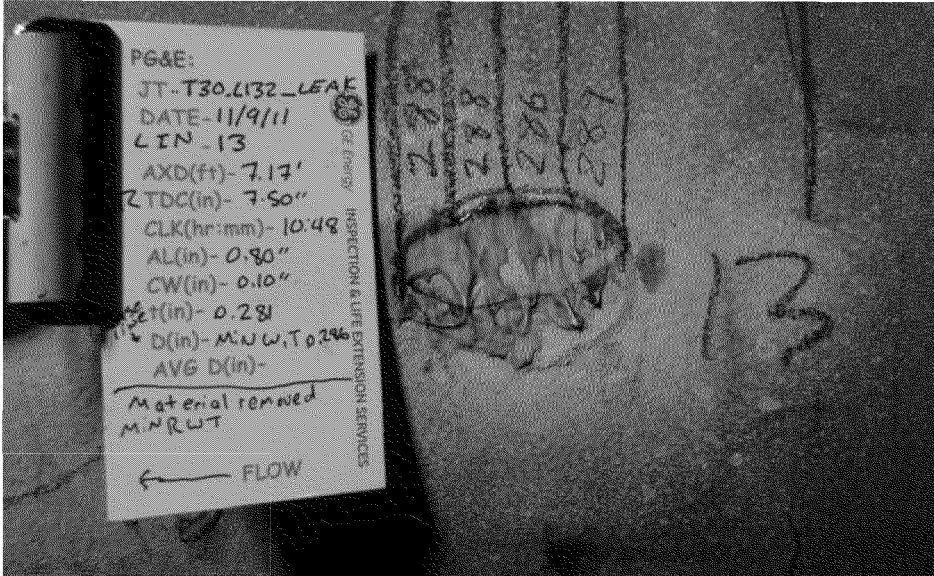 PG&E:
JT-T30_L132_LEAK
DATE-11/9/11
LIN - 13
AXD(ft)- 7.17'
TDC(in)- 7.50"
CLK(hr:mm)- 10:48
AL(in)- 0.80"
CW(in)- 0.10"
t(in)- 0.281
D(in)- MiN W.T 0.286
AVG D(in)-
Material removed
MiNRWT
← FLOW
GE Energy INSPECTION & LIFE EXTENSION SERVICES
288
286
287
13